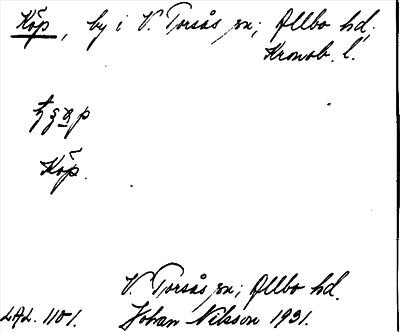 Köp, by i V. Torsås sn; Allbo hd,
Kronob. l.
Köp.
V. Torsås sn; Allbo hd.
LAL. 1101. Johan Nilsson 1931.